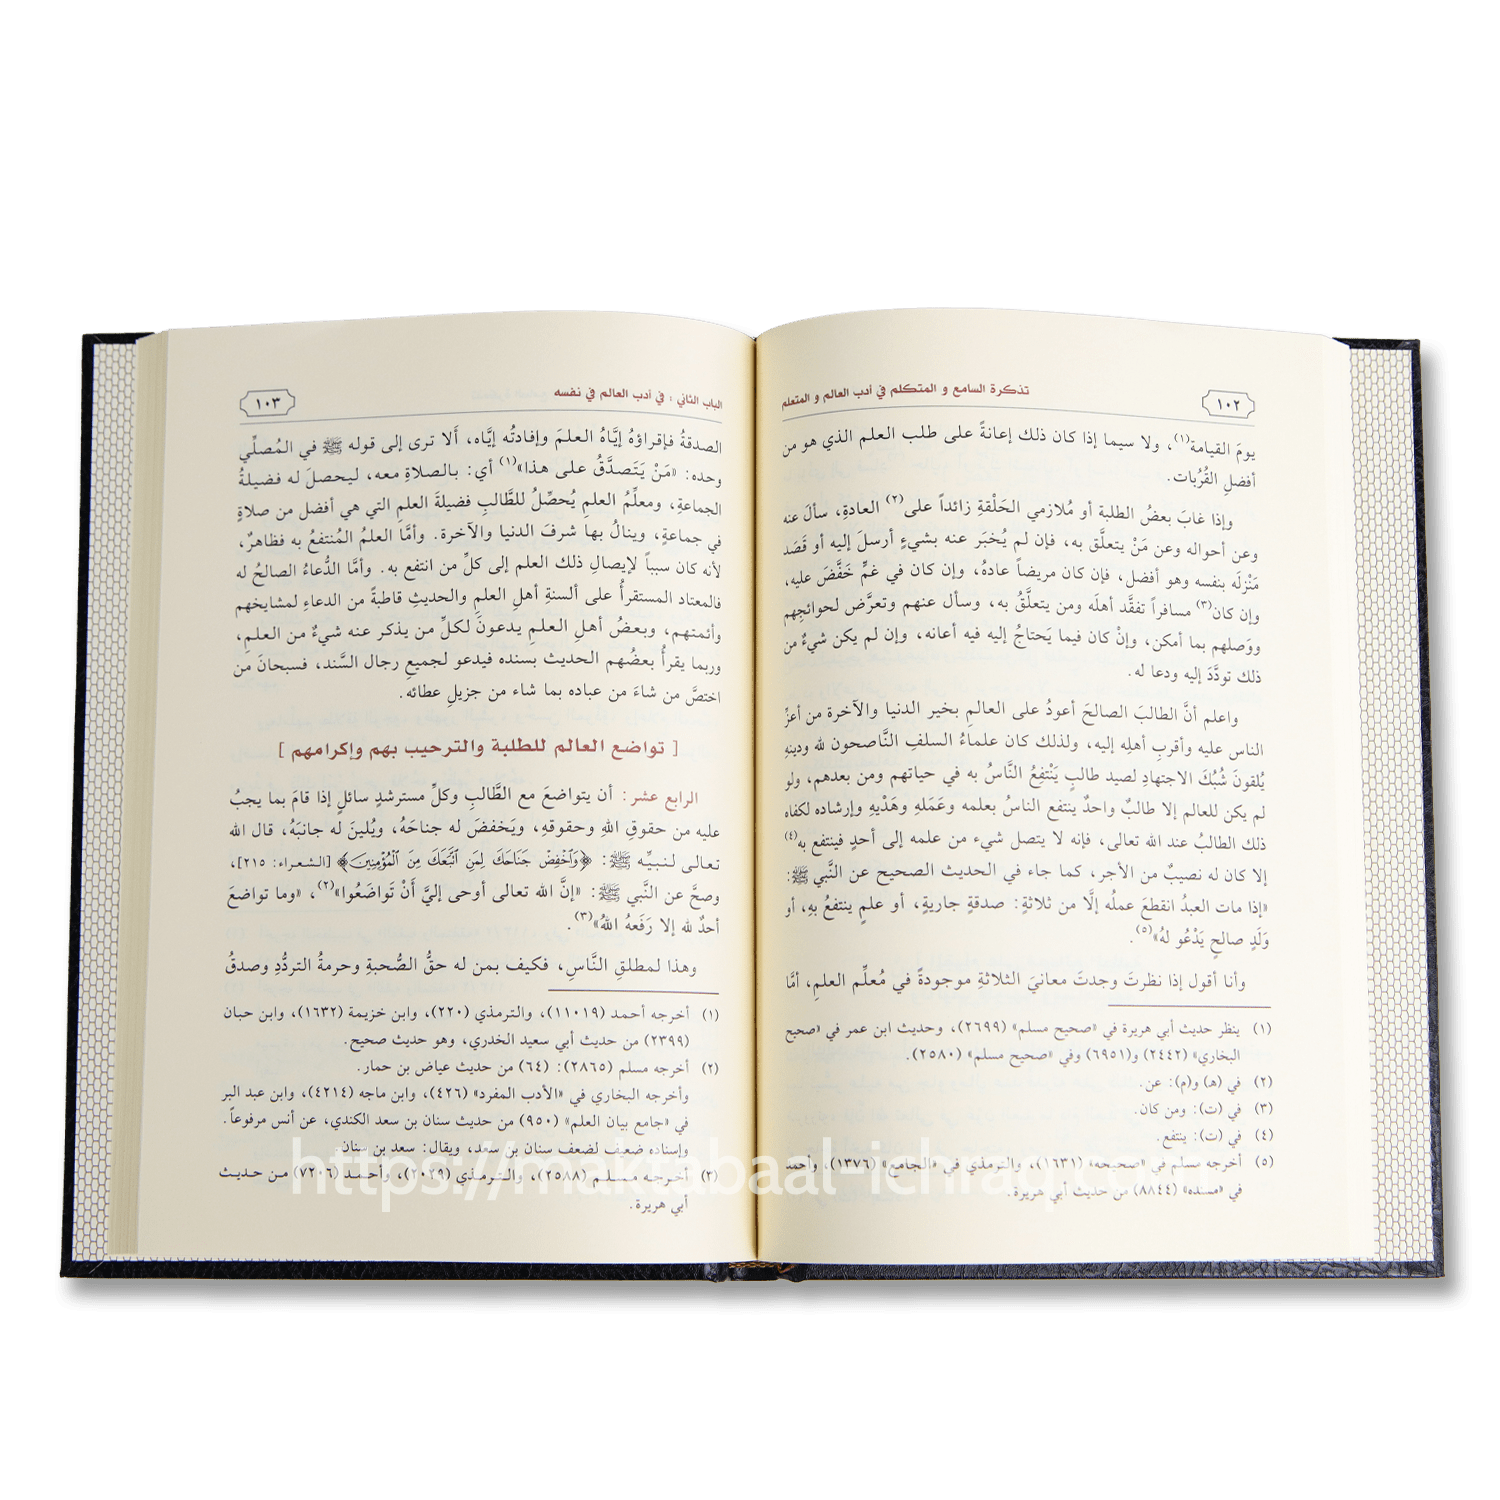 ١٠٢
تذكرة السامع و المتكلم في أدب العالم و المتعلم
يومَ القيامة(١)، ولا سيما إذا كان ذلك إعانةً على طلب العلم الذي هو من
أفضلِ القُرُبات.
وإذا غابَ بعضُ الطلبة أو مُلازمي الحَلْقةِ زائداً على(٢) العادةِ، سألَ عنه
وعن أحواله وعن مَنْ يتعلَّق به، فإن لم يُخبَر عنه بشيءٍ أرسلَ إليه أو قَصَد
مَنْزلَه بنفسه وهو أفضل، فإن كان مريضاً عادهُ، وإن كان في غمٍّ خَفَّضَ عليه،
وإن كان(٣) مسافراً تفقَّد أهلَه ومن يتعلَّقُ به، وسأل عنهم وتعرَّض لحوائجِهم
ووَصلهم بما أمكن، وإنْ كان فيما يَحتاجُ إليه فيه أعانه، وإن لم يكن شيءٌ من
ذلك تودَّدَ إليه ودعا له.
واعلم أنَّ الطالبَ الصالحَ أعودُ على العالمِ بخير الدنيا والآخرة من أعزِّ
الناس عليه وأقربِ أهلِه إليه، ولذلك كان علماءُ السلفِ النَّاصحون لله ودينهِ
يُلقونَ شُبُكَ الاجتهادِ لصيد طالبٍ يَنْتفِعُ النَّاسُ به في حياتهم ومن بعدهم، ولو
لم يكن للعالم إلا طالبٌ واحدٌ ينتفع الناسُ بعلمه وعَمَلهِ وهَدْيهِ وإرشاده لكفاه
ذلك الطالبُ عند الله تعالى، فإنه لا يتصل شيء من علمه إلى أحدٍ فينتفع به(٤)
إلا كان له نصيبٌ من الأجر، كما جاء في الحديث الصحيح عن النَّبي ﷺ:
«إذا مات العبدُ انقطعَ عملُه إلَّا من ثلاثةٍ: صدقةٍ جاريةٍ، أو علمٍ ينتفعُ بهِ، أو
وَلَدٍ صالحٍ يَدْعُو لهُ»(٥).
وأنا أقول إذا نظرتَ وجدتَ معانيَ الثلاثةِ موجودةً في مُعلِّم العلمِ، أمَّا
(١) ينظر حديث أبي هريرة في «صحيح مسلم» (٢٦٩٩)، وحديث ابن عمر في «صحيح
البخاري» (٢٤٤٢) و(٦٩٥١) وفي «صحيح مسلم» (٢٥٨٠).
(٢) في (هـ) و(م): عن.
(٣) في (ت): ومن كان.
(٤) في (ت): ينتفع.
(٥) أخرجه مسلم في «صحيحه» (١٦٣١)، والترمذي في «الجامع» (١٣٧٦)، وأحمد
في «مسنده» (٨٨٤٤) من حديث أبي هريرة.
الباب الثاني : في أدب العالم في نفسه
١٠٣
الصدقةُ فإقراؤهُ إيَّاهُ العلمَ وإفادتُه إيَّاه، ألا ترى إلى قوله ﷺ في المُصلِّي
وحده: «مَنْ يَتَصدَّقُ على هذا»(١) أي: بالصلاةِ معه، ليحصلَ له فضيلةُ
الجماعةِ، ومعلِّمُ العلمِ يُحصِّلُ للطَّالبِ فضيلةَ العلمِ التي هي أفضل من صلاةٍ
في جماعةٍ، وينالُ بها شرفَ الدنيا والآخرة. وأمَّا العلمُ المُنتفعُ به فظاهرٌ،
لأنه كان سبباً لإيصالِ ذلك العلم إلى كلِّ من انتفع به. وأمَّا الدُّعاءُ الصالحُ له
فالمعتاد المستقرأُ على ألسنةِ أهلِ العلمِ والحديثِ قاطبةً من الدعاءِ لمشايخهم
وأئمتهم، وبعضُ أهلِ العلمِ يدعونَ لكلِّ من يذكر عنه شيءٌ من العلمِ،
وربما يقرأُ بعضُهم الحديث بسنده فيدعو لجميعِ رجال السَّند، فسبحانَ من
اختصَّ من شاءَ من عباده بما شاء من جزيلِ عطائه.
[ تواضع العالم للطلبة والترحيب بهم وإكرامهم ]
الرابع عشر: أن يتواضعَ مع الطَّالبِ وكلِّ مسترشدٍ سائلٍ إذا قامَ بما يجبُ
عليه من حقوقِ اللهِ وحقوقهِ، ويَخفضَ له جناحَهُ، ويُلينَ له جانبَهُ، قال الله
تعالى لنبيِّه ﷺ: ﴿وَاخْفِضْ جَنَاحَكَ لِمَنِ اتَّبَعَكَ مِنَ الْمُؤْمِنِينَ﴾ [الشعراء: ٢١٥]،
وصحَّ عن النَّبي ﷺ: «إنَّ الله تعالى أوحى إليَّ أنْ تَواضَعُوا»(٢)، «وما تواضعَ
أحدٌ لله إلا رَفَعهُ اللهُ»(٣).
وهذا لمطلقِ النَّاسِ، فكيف بمن له حقُّ الصُّحبةِ وحرمةُ التردُّدِ وصدقُ
(١) أخرجه أحمد (١١٠١٩)، والترمذي (٢٢٠)، وابن خزيمة (١٦٣٢)، وابن حبان
(٢٣٩٩) من حديث أبي سعيد الخدري، وهو حديث صحيح.
(٢) أخرجه مسلم (٢٨٦٥): (٦٤) من حديث عياض بن حمار.
وأخرجه البخاري في «الأدب المفرد» (٤٢٦)، وابن ماجه (٤٢١٤)، وابن عبد البر
في «جامع بيان العلم» (٩٥٠) من حديث سنان بن سعد الكندي، عن أنس مرفوعاً.
وإسناده ضعيف لضعف سنان بن سعد، ويقال: سعد بن سنان.
(٣) أخرجه مسلم (٢٥٨٨)، والترمذي (٢٠٢٩)، وأحمد (٧٢٠٦) من حديث
أبي هريرة.
https://maktabaal-ichraq.com